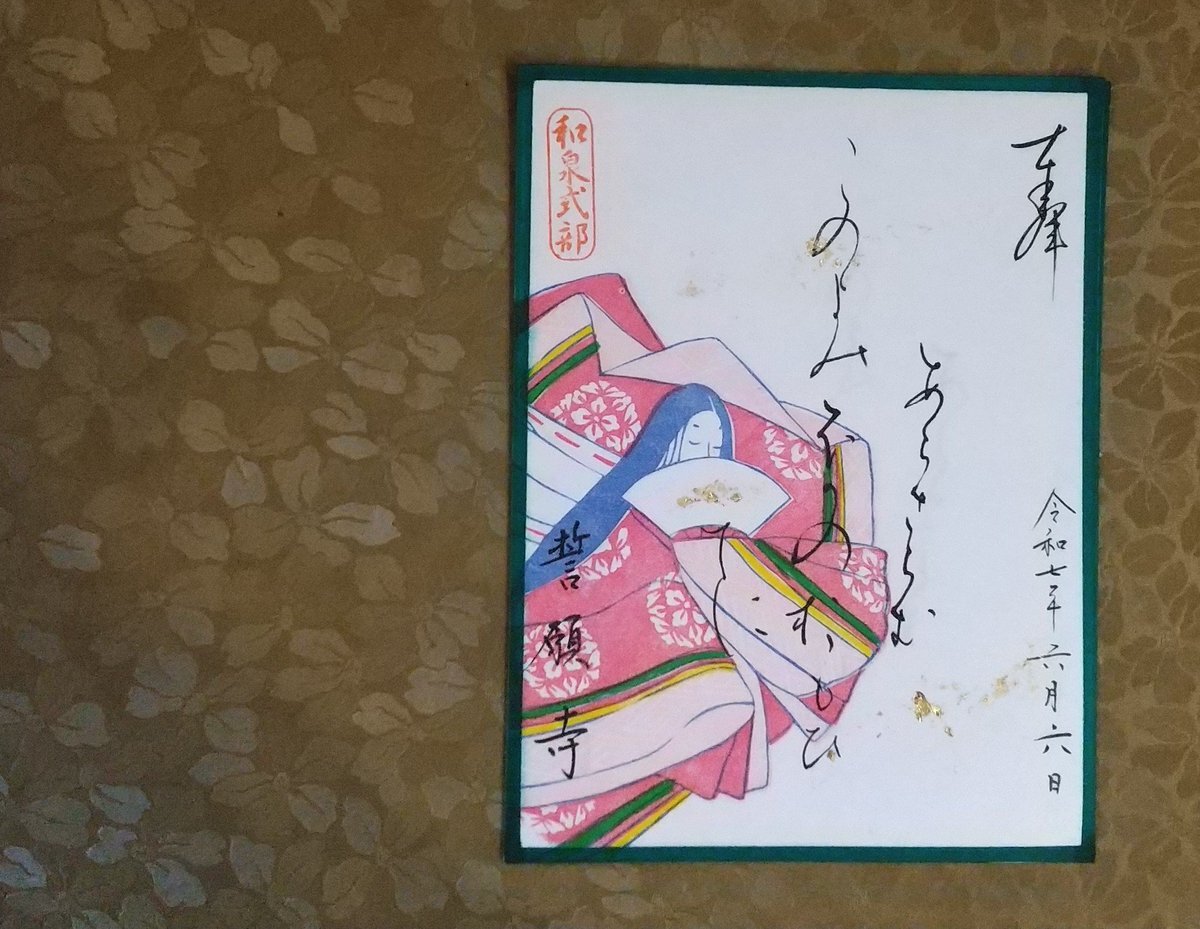 奉拝
令和七年 六月六日
あらさらむ
このよのほかのおもひ
てに
和泉式部
誓願寺